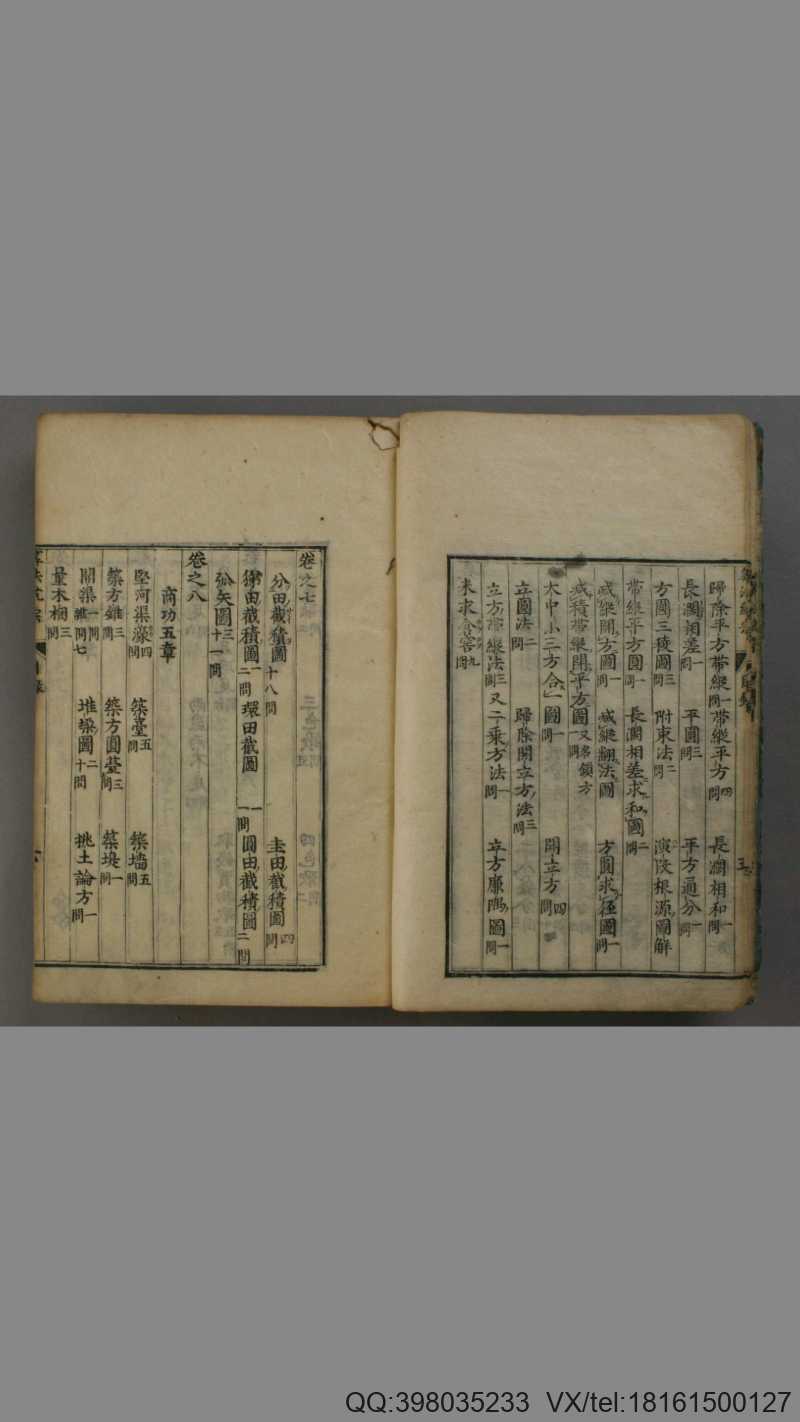 歸除平方帶縱一問 帶縱平方四問 長濶相和一問
長濶相差一問 平圓三問 平方通分一問
方圓三稜圖三問 附束法二問 演段根源圖解
帶縱平方圓一問 長濶相差求和圖二問
減縱開方圖一問 減縱翻法圖 方圓求徑圖一問
減積帶縱開平方圖又名領方一問
大中小三方合一圖一問 開立方四問
立圓法二問 歸除開立方法三問
立方帶縱法三問 又二乘方法一問 立方廉隅圖一問
米求倉窖九問
卷之七
分田截積圖十八問 圭田截積圖四問
梯田截積圖一二問 環田截圖一一問 圓田截積圖二問
弧矢圖三十一問
卷之八
商功五章
堅河渠濠四問 築臺五問 築墻五問
築方錐三問 築方圓臺三問 築堤一問
開渠一問 雜問七 堆垜圖二十問 挑土論方一問
量木梱三問
目錄
QQ:398035233 VX/tel:18161500127